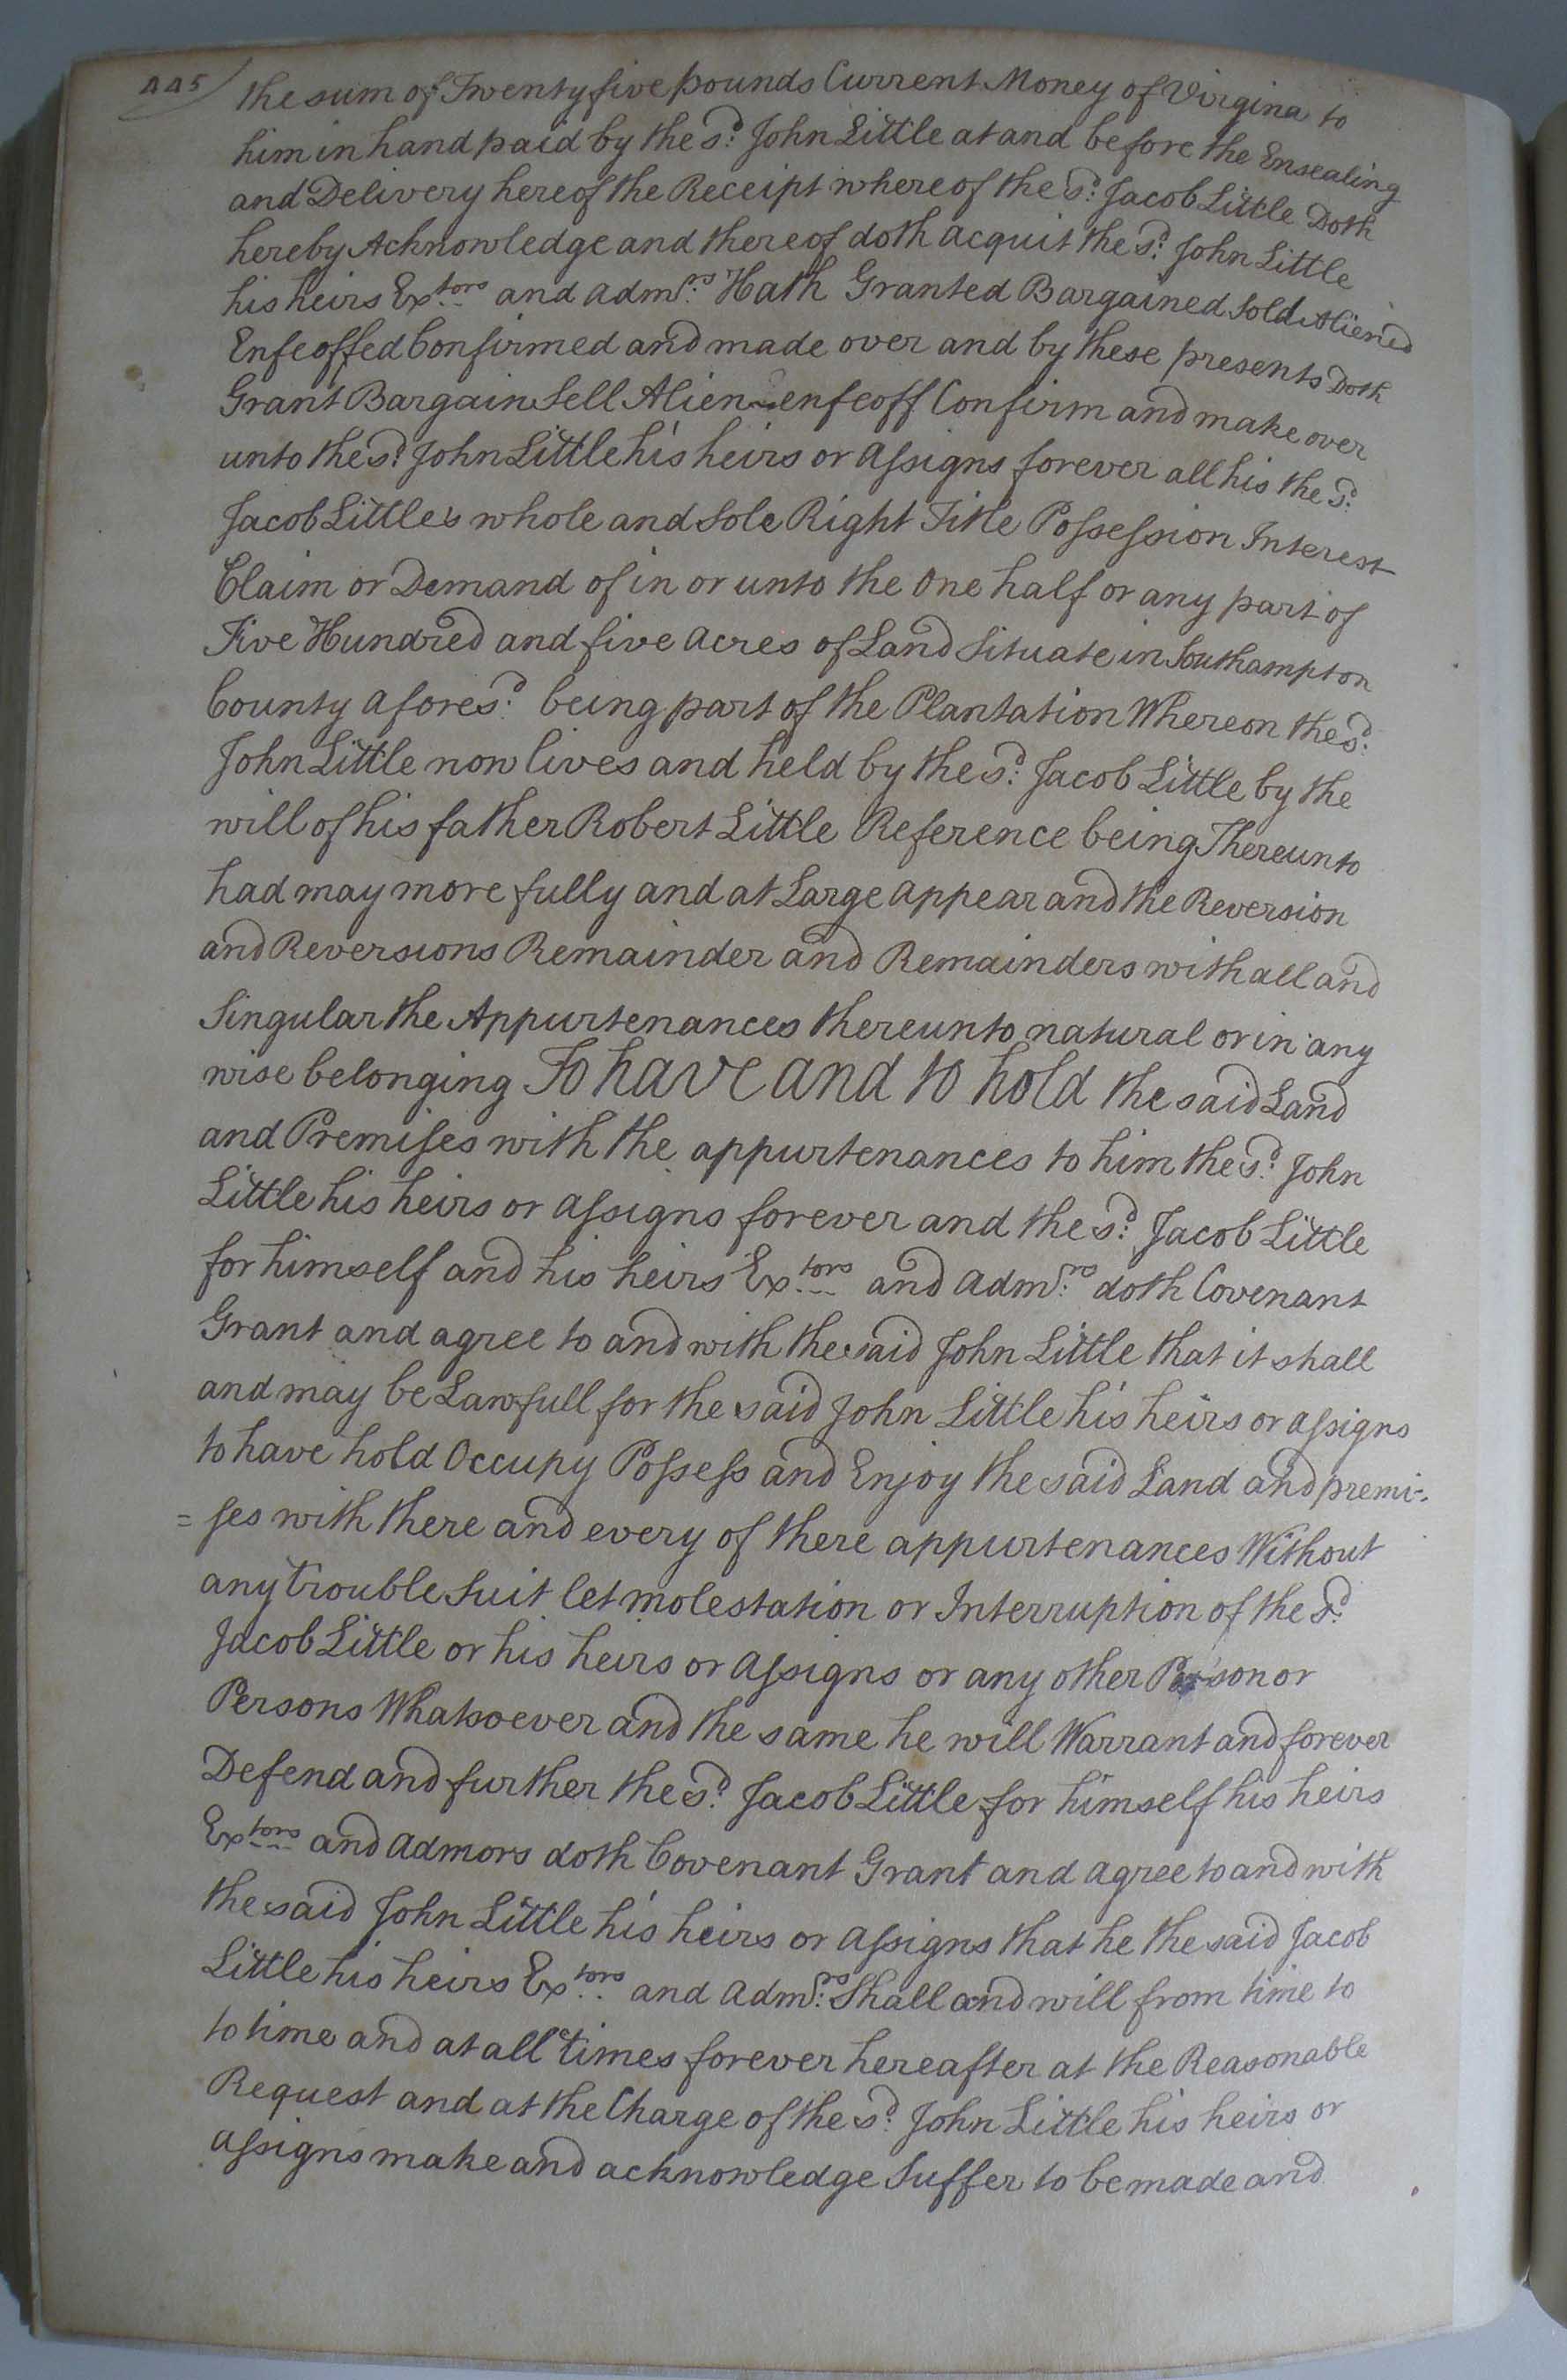 445
the sum of Twenty five pounds Current Money of Virgina to
him in hand paid by the sd. John Little at and before the Ensealing
and Delivery hereof the Receipt whereof the sd. Jacob Little Doth
hereby Acknowledge and thereof doth acquit the sd. John Little
his heirs Extors and admrs. Hath Granted Bargained Sold Aliened
Enfeoffed Confirmed and made over and by these presents Doth
Grant Bargain Sell Alien enfeoff Confirm and make over
unto the sd. John Little his heirs or assigns forever all his the sd.
Jacob Little's whole and Sole Right Title Possession Interest
Claim or Demand of in or unto the One half or any part of
Five Hundred and five acres of Land Situate in Southampton
County aforesd. being part of the Plantation Whereon the sd.
John Little now lives and held by the sd. Jacob Little by the
will of his father Robert Little Reference being Thereunto
had may more fully and at Large appear and the Reversion
and Reversions Remainder and Remainders with all and
Singular the Appurtenances thereunto natural or in any
wise belonging To have and to hold the said Land
and Premises with the appurtenances to him the sd. John
Little his heirs or assigns forever and the sd. Jacob Little
for himself and his heirs Extors and admrs. doth Covenant
Grant and agree to and with the said John Little that it shall
and may be Lawfull for the said John Little his heirs or assigns
to have hold Occupy Possess and Enjoy the said Land and premi-
=ses with there and every of there appurtenances Without
any trouble Suit let molestation or Interruption of the sd.
Jacob Little or his heirs or assigns or any other Person or
Persons Whatsoever and the same he will Warrant and forever
Defend and further the sd. Jacob Little for himself his heirs
Extors and admors doth Covenant Grant and agree to and with
the said John Little his heirs or assigns that he the said Jacob
Little his heirs Extors and admrs. Shall and will from time to
to time and at all times forever hereafter at the Reasonable
Request and at the Charge of the sd. John Little his heirs or
assigns make and acknowledge Suffer to be made and